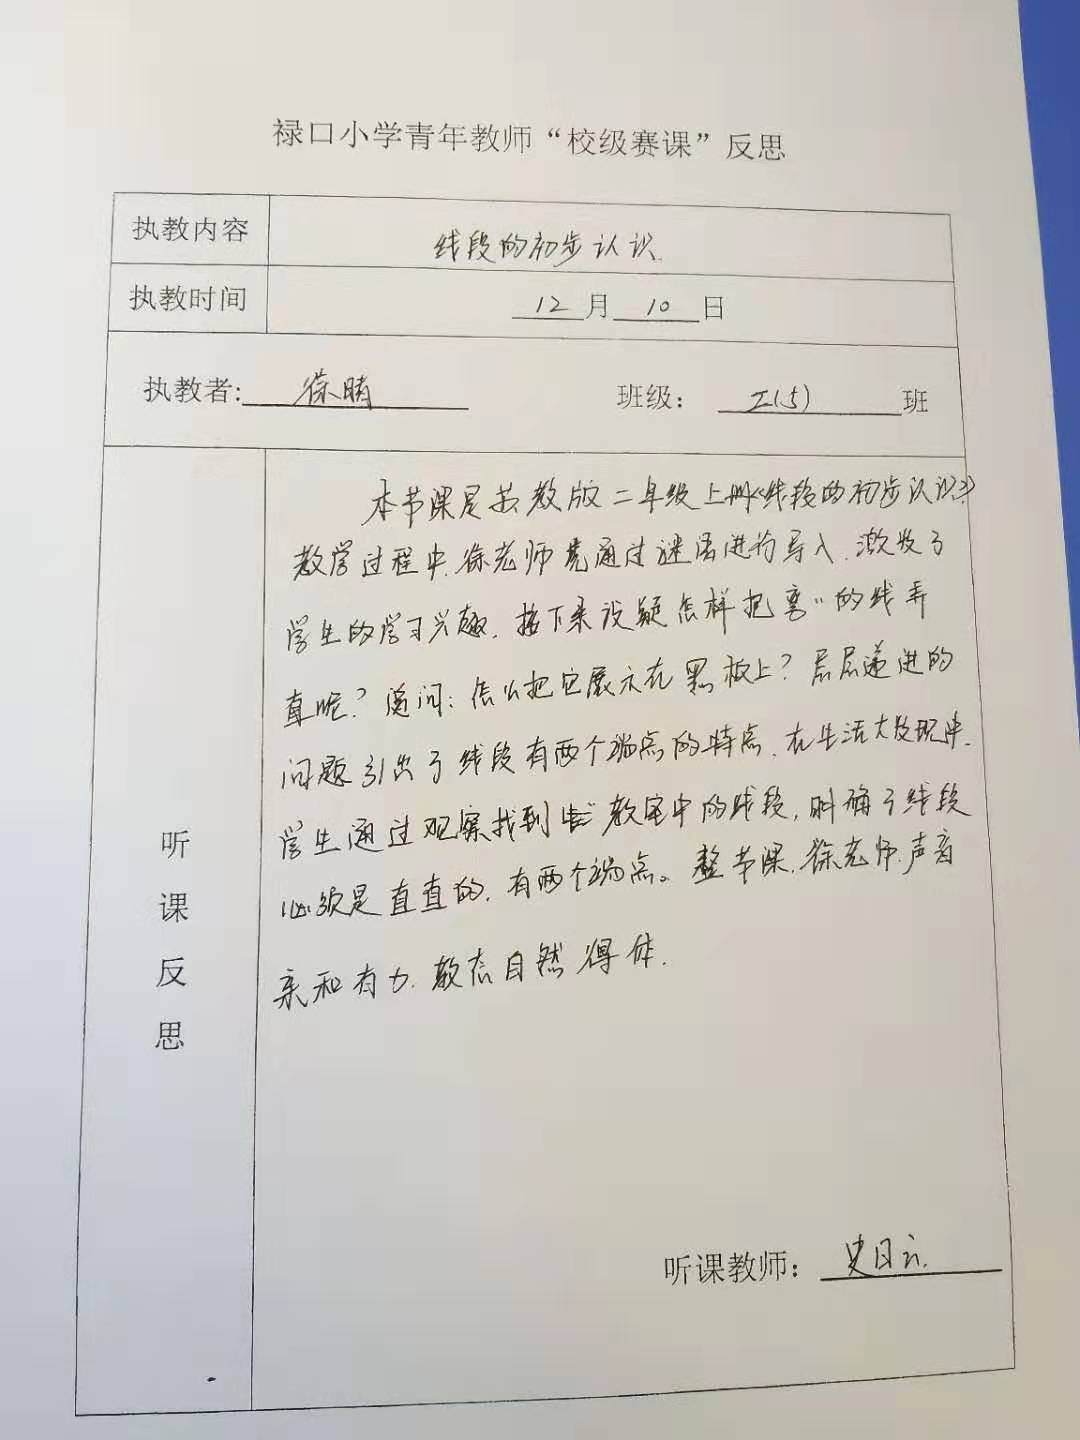 禄口小学青年教师“校级赛课”反思
执教内容 线段的初步认识.
执教时间 12月10日
执教者: 徐晴 班级: 二(5) 班
听课反思
本节课是苏教版二年级上册《线段的初步认识》
教学过程中,徐老师先通过谜语进行导入,激发了
学生的学习兴趣,接下来设疑怎样把弯〃的线弄
直呢?追问:怎么把它展示在黑板上?层层递进的
问题引出了线段有两个端点的特点,在生活大发现中,
学生通过观察找到 教室中的线段,明确了线段
必须是直直的,有两个端点。整节课,徐老师声音
亲和有力,教态自然得体.
听课教师: 史日云